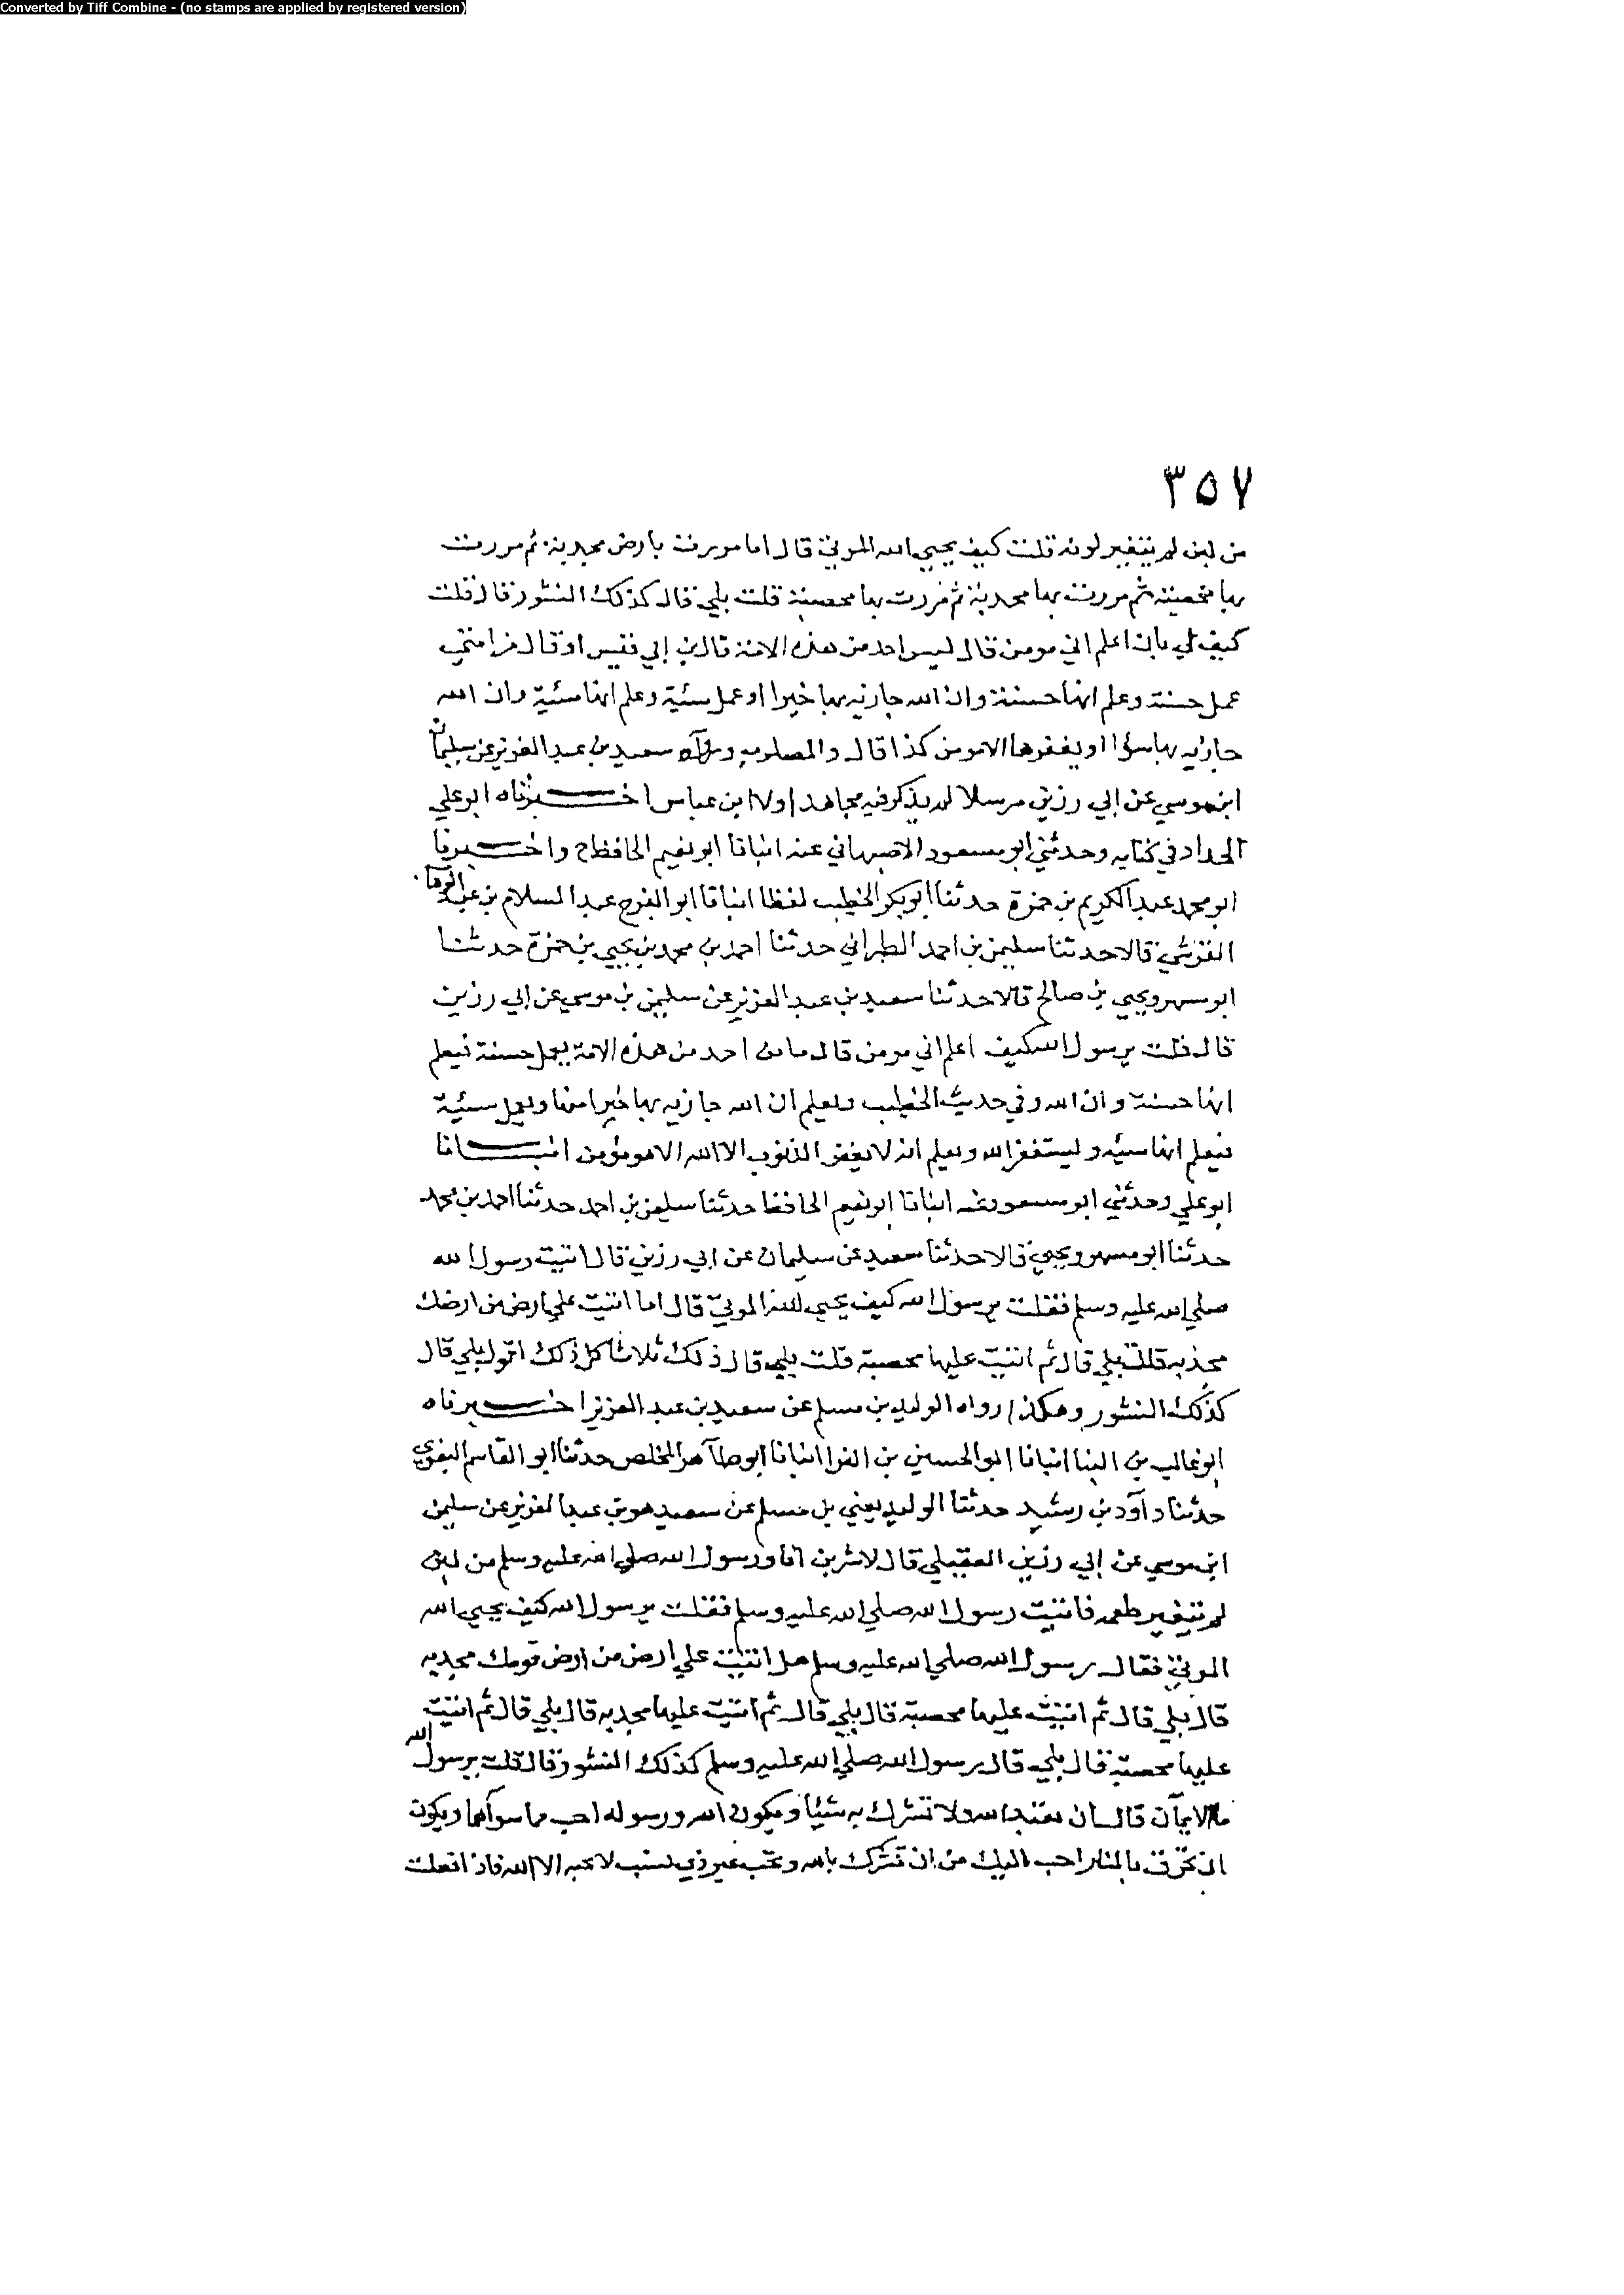 Converted by Tiff Combine - (no stamps are applied by registered version)
٣٥٧
من لبن لم يتغير لونه قلت كيف يحيي الله الموتي قال اما مررت بارض مجدبة ثم مررت
بها مخصبة ثم مررت بها مجدبة ثم مررت بها مخصبة قلت بلي قال كذلك النشور قال قلت
كيف لي بان اعلم اني مومن قال ليس احد من هذه الامة قال بن ابي قيس او قال من امتي
عمل حسنة وعلم انها حسنة وان الله جازيه بها خيرا او عمل سئية وعلم انها سئية وان الله
جازيه بها سؤا او يغفرها الا مومن كذا قال والمصلوب ورواه سعيد بن عبد العزيز عن سليمان
ابن موسي عن ابي رزين مرسلا لم يذكر فيه مجاهدا ولا ابن عباس اخبرناه ابو علي
الحداد في كتابه وحدثني ابو مسعود الاصبهاني عنه انبانا ابو نعيم الحافظ ح واخبرنا
ابو محمد عبد الكريم بن حمزة حدثنا ابو بكر الخطيب لفظا انبانا ابو الفرج عبد السلام بن عبد الوهاب
القرشي قالا حدثنا سليمن بن احمد الطبراني حدثنا احمد بن محمد بن يحيي بن حمزة حدثنا
ابو مسهر ويحيي بن صالح قالا حدثنا سعيد بن عبد العزيز عن سليمن بن موسي عن ابي رزين
قال قلت يرسول الله كيف اعلم اني مومن قال ما من احد من هذه الامة يعمل حسنة فيعلم
انها حسنة وان الله وفي حديث الخطيب ويعلم ان الله جازيه بها خيرا منها ويعمل سيئة
فيعلم انها سيئه وليستغفر الله ويعلم انه لا يغفر الذنوب الا الله الا هو مؤمن انبانا
ابو علي وحدثني ابو مسعود عنه انبانا ابو نعيم الحافظ حدثنا سليمن بن احمد حدثنا احمد بن محمد
حدثنا ابو مسهر ويحيي قالا حدثنا سعيد عن سليمان عن ابي رزين قال اتيت رسول الله
صلي الله عليه وسلم فقلت يرسول الله كيف يحيي الله الموتي قال اما اتيت علي ارض من ارضك
مجدبه قلت بلي قال ثم اتيت عليها مخصبة قلت بلي قال ذلك ثلاثا كل ذلك اقول بلي قال
كذلك النشور وهكذا رواه الوليد بن مسلم عن سعيد بن عبد العزيز اخبرناه
ابو غالب بن البنا انبانا ابو الحسين بن الفرا انبانا ابو طاهر المخلص حدثنا ابو القاسم البغوي
حدثنا داود بن رشيد حدثنا الوليد يعني بن مسلم عن سعيد هو بن عبد العزيز عن سليمن
ابن موسي عن ابي رزين العقيلي قال لاشربن انا ورسول الله صلي الله عليه وسلم من لبن
لم يتغير طعمه فاتيت رسول الله صلي الله عليه وسلم فقلت يرسول الله كيف يحيي الله
الموتي فقال رسول الله صلي الله عليه وسلم هل اتيت علي ارض من ارض قومك مجدبه
قال بلي قال ثم اتيت عليها مخصبة قال بلي قال ثم اتيت عليها مجدبه قال بلي قال ثم اتيت
عليها مخصبة قال بلي قال رسول الله صلي الله عليه وسلم كذلك النشور قال قلت يرسول الله
ما الايمان قال ان تعبد الله ولا تشرك به شيئا ويكون الله ورسوله احب مما سواهما ويكون
ان تحرق بالنار احب اليك من ان تشرك بالله وتحب غير ذي نسب لا تحبه الا الله فاذا فعلت